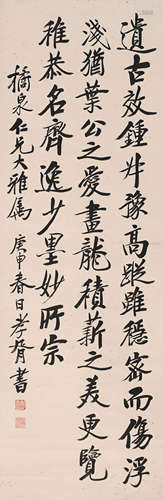 遺古效鍾斗豫高蹤雖穩密而傷浮
淺猶葉公之愛畫龍積薪之美更覽
稚恭名齊逸少墨妙所宗
橘泉仁兄大雅属 庚申春日孝胥書